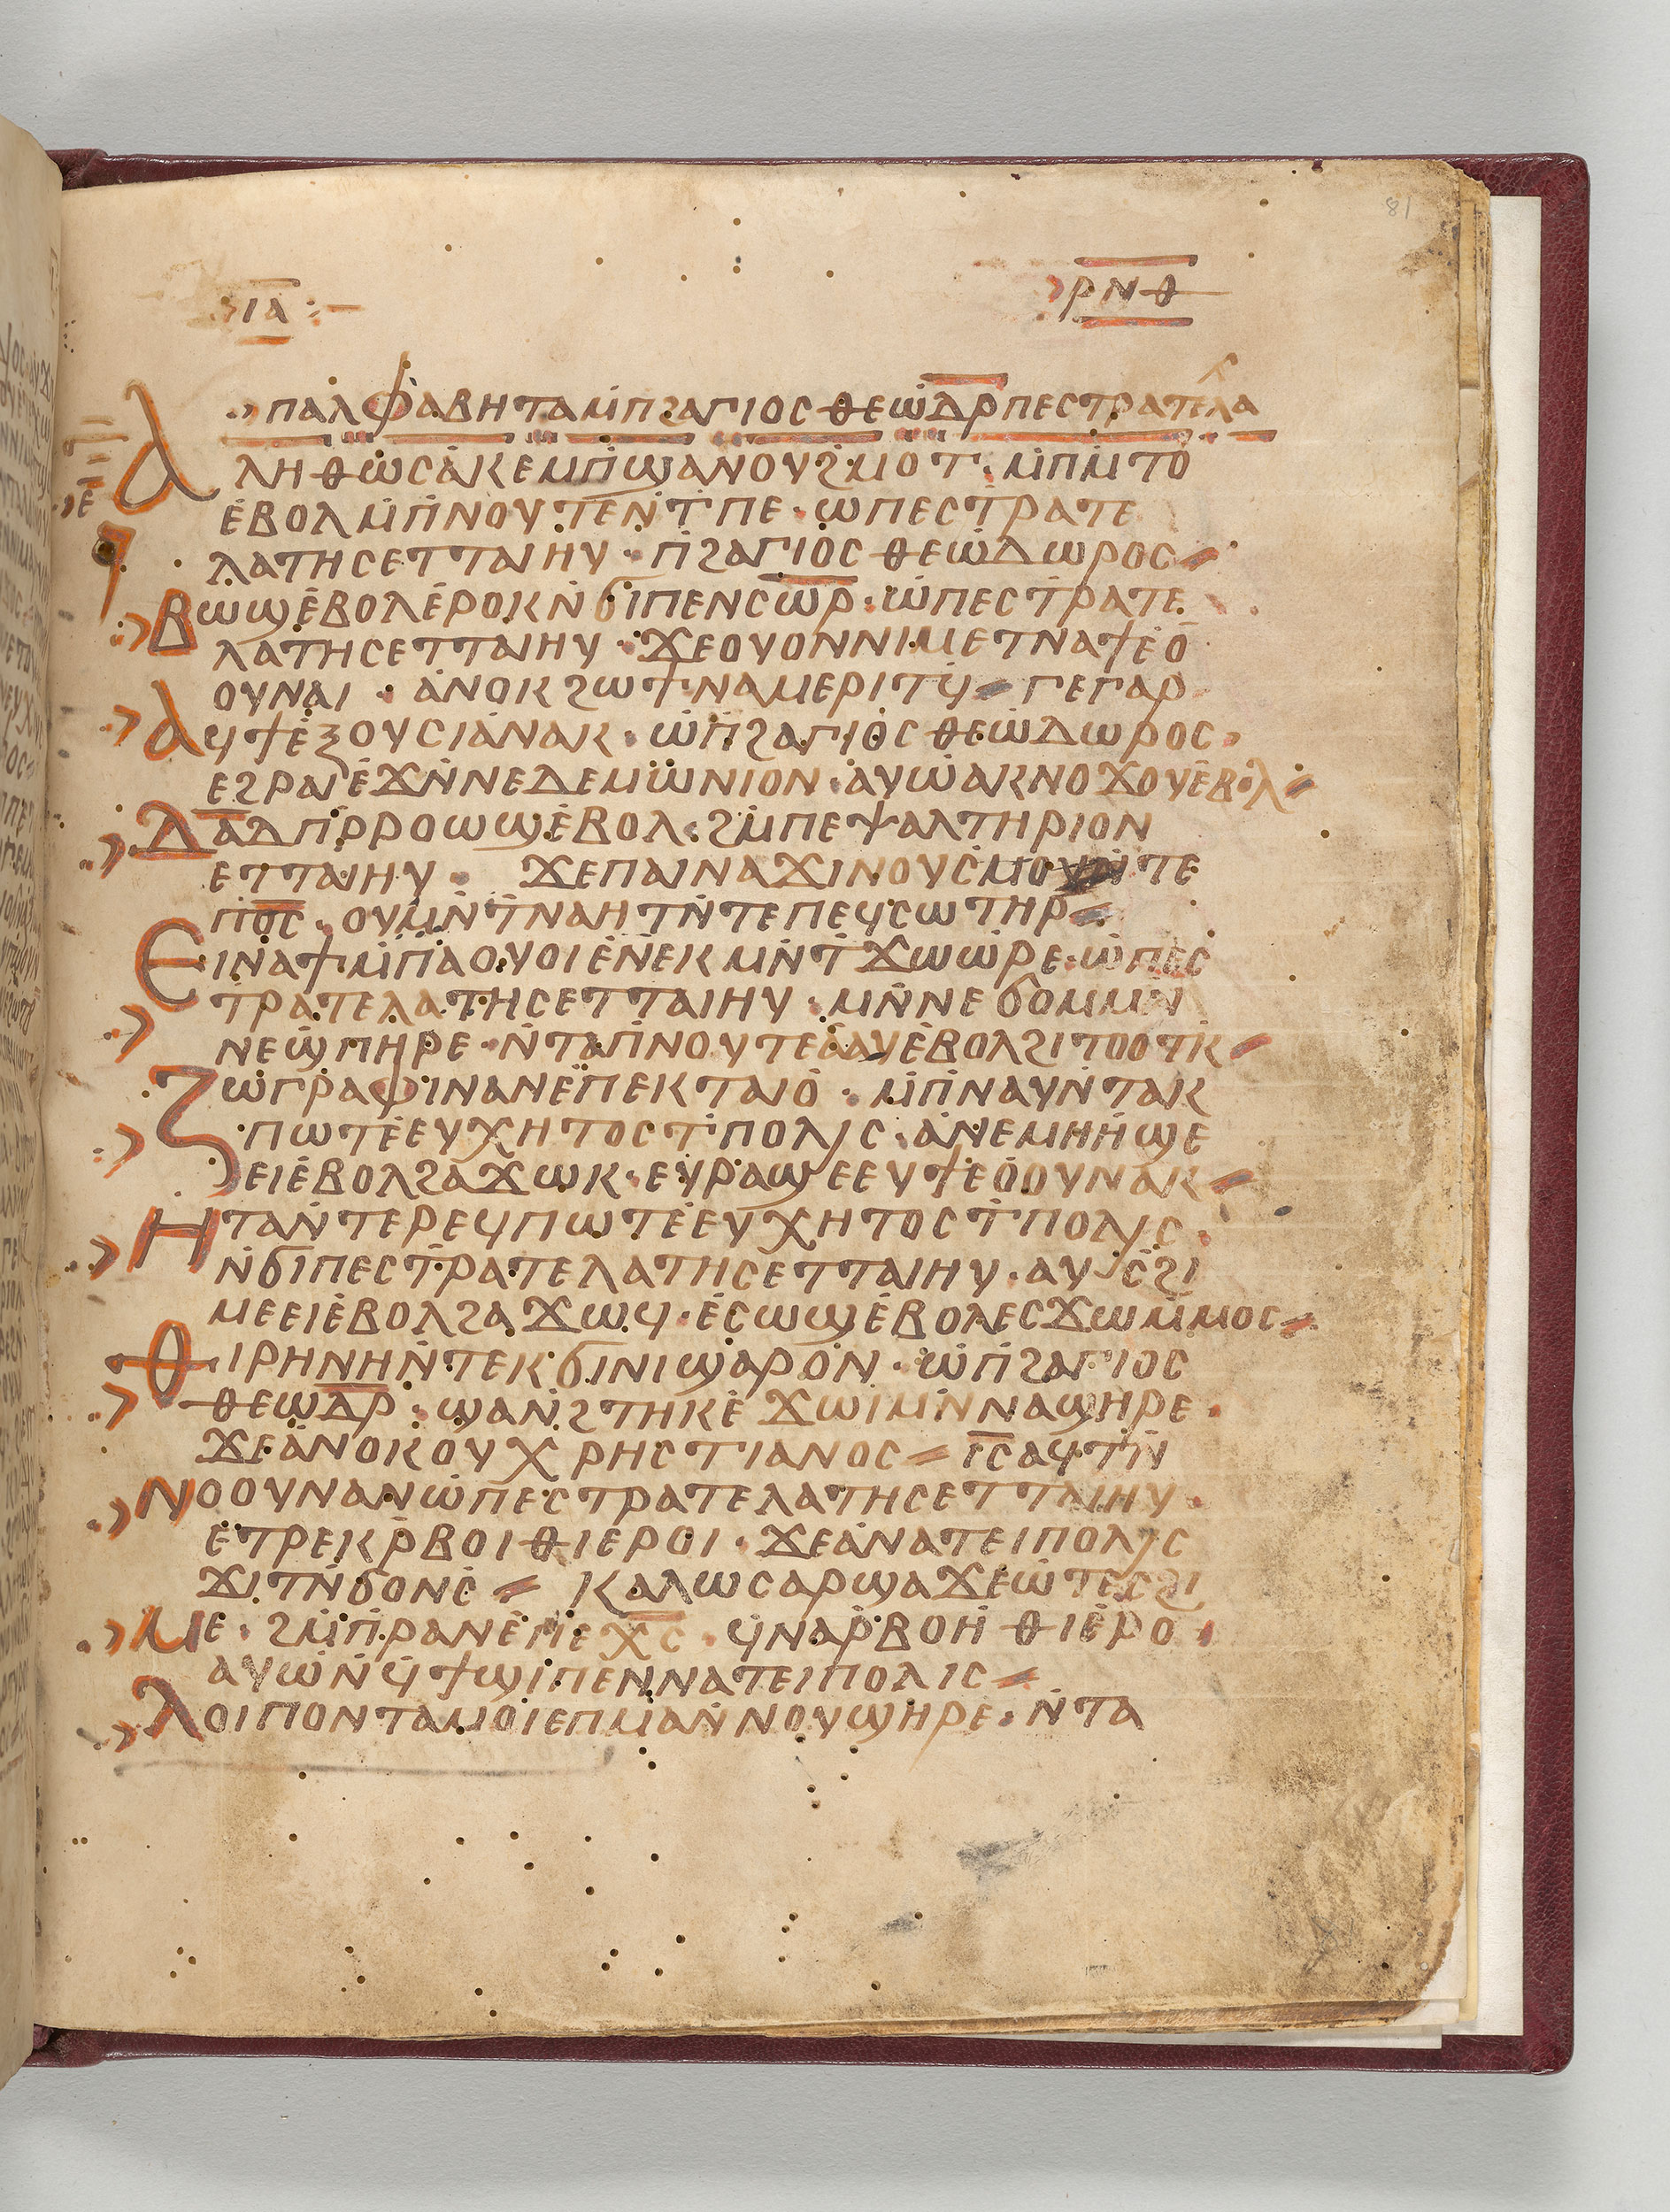 81
ⲓⲁ ⲣⲛⲑ
ⲡⲁⲗⲫⲁⲃⲏⲧⲁⲙ̇ⲡϩⲁⲅⲓⲟⲥ ⲑⲉⲱ̇ⲇⲣ̅ ⲡⲉⲥⲧⲣⲁⲧⲉⲗⲁ
ⲁⲗⲏⲑⲱⲥⲁ̇ⲕⲉⲙⲡ̇ϣⲁⲛⲟⲩϩ̇ⲙⲟⲧ · ⲙ̇ⲡⲙ̇ⲧⲟ
ⲉ̅
ⲉ̇ⲃⲟⲗ ⲙ̇ⲡ̇ⲛⲟⲩⲧⲉⲛ̇ⲧ̇ⲡⲉ · ⲱⲡⲉⲥⲧ̇ⲣⲁⲧⲉ
ⲗⲁⲧⲏⲥⲉⲧⲧⲁⲓⲏⲩ · ⲡ̇ϩⲁⲅⲓⲟⲥ ⲑⲉⲱ̇ⲇⲱⲣⲟⲥ
ⲃⲱϣⲉ̇ⲃⲟⲗⲉ̇ⲣⲟⲕⲛ̇ϭⲓⲡⲉⲛⲥⲱ̅ⲣ̅ · ⲱ̇ⲡⲉⲥⲧ̇ⲣⲁⲧⲉ
ⲗⲁⲧⲏⲥⲉⲧⲧⲁⲓⲏⲩ · ϫⲉⲟⲩⲟⲛⲛⲓⲙⲉⲧⲛⲁϯⲉ̇ⲟ̅
ⲟⲩⲛⲁⲓ · ⲁ̇ⲛⲟⲕϩⲱϯⲛⲁⲙⲉⲣⲓⲧϥ̇ ⲅⲉⲅⲁⲣ
ⲁϥϯⲉ̇ⲝⲟⲩⲥⲓⲁ̇ⲛⲁⲕ · ⲱ̇ⲡ̇ϩⲁⲅⲓⲟ̇ⲥ ⲑⲉⲱ̇ⲇⲱⲣⲟⲥ
ⲉϩⲣⲁⲓ̈ⲉ̇ϫⲛ̇ⲛⲉⲇⲉⲙⲱ̈ⲛⲓⲟⲛ · ⲁⲩⲱ̇ⲁⲕⲛⲟϫⲟⲩⲉ̇ⲃⲟⲗ
ⲇⲁ̅ⲇ̅ⲡ̇ⲣ̇ⲣⲟⲱϣⲉ̇ⲃⲟⲗ · ϩⲙ̇ⲡⲉⲯⲁⲗⲧⲏⲣⲓⲟⲛ
ⲉⲧⲧⲁⲓⲏⲩ · ϫⲉⲡⲁⲓⲛⲁϫⲓⲛⲟⲩⲥ̇ⲙⲟⲩⲛ̇ⲧⲉ
ⲡⲟ̅ⲥ̅ · ⲟⲩⲙ̇ⲛ̇ⲧ̇ⲛⲁⲏⲧⲛ̇ⲧⲉⲡⲉϥⲥⲱⲧⲏⲣ
ⲉⲓⲛⲁϯⲙ̇ⲡ̇ⲁⲟⲩⲟⲓⲉ̇ⲛ̇ⲉⲕⲙⲛ̇ⲧ̇ϫⲱⲱ̇ⲣⲉ · ⲱ̇ⲡⲉⲥ
ⲧⲣⲁⲧⲉⲗⲁⲧⲏⲥⲉⲧⲧⲁⲓⲏⲩ · ⲙⲛ̇ⲛⲉϭⲟⲙⲙⲛ̇
ⲛⲉϣ̇ⲡⲏⲣⲉ · ⲛ̇ⲧⲁⲡ̇ⲛⲟⲩⲧⲉⲁ̇ⲁⲩⲉ̇ⲃⲟⲗϩⲓⲧⲟⲟⲧⲕ̇
ⲍⲱⲅⲣⲁⲫⲓⲛⲁⲛⲉ̈ⲡⲉⲕⲧⲁⲓⲟ̇ · ⲙ̇ⲡ̇ⲛⲁⲩⲛ̇ⲧⲁⲕ
ⲡⲱⲧⲉ̇ⲉⲩⲭⲏⲧⲟⲥⲧ̇ⲡⲟⲗⲓⲥ · ⲁ̇ⲛⲉⲙⲏⲏ̇ϣⲉ
ⲉⲓⲉ̇ⲃⲟⲗϩⲁϫⲱⲕ · ⲉⲩⲣⲁϣⲉⲉⲩϯⲉⲟ̇ⲟⲩⲛⲁⲕ
ⲏⲧⲁⲛ̇ⲧⲉⲣⲉϥⲡⲱⲧⲉ̇ⲉⲩⲭⲏⲧⲟⲥⲧ̇ⲡⲟⲗⲓⲥ ·
ⲛ̇ϭⲓⲡⲉⲥⲧ̇ⲣⲁⲧⲉⲗⲁⲧⲏⲥⲉⲧⲧⲁⲓⲏⲩ · ⲁⲩⲥ̇ϩⲓ
ⲙⲉⲉⲓⲉ̇ⲃⲟⲗϩⲁϫⲱϥ · ⲉ̇ⲥⲱϣⲉ̇ⲃⲟⲗⲉⲥϫⲱⲙ̇ⲙⲟⲥ
ⲑⲓⲣⲏⲛⲏⲛ̇ⲧⲉⲕϭⲓⲛⲓϣⲁⲣⲟ̇ⲛ · ⲱ̇ⲡ̇ϩⲁⲅⲓⲟⲥ
ⲑⲉⲱ̅ⲇ̅ⲣ̅ · ϣⲁⲛ̇ϩⲧⲏⲕⲉ̇ϫⲱⲓⲙⲛ̇ⲛⲁϣⲏⲣⲉ ·
ϫⲉⲁ̇ⲛⲟⲕⲟⲩⲭⲣⲏⲥⲧⲓⲁⲛⲟⲥ ⲓ̅ⲥ̅ⲁϥⲧⲛ̇
ⲛⲟⲟⲩⲛⲁⲛⲱ̇ⲡⲉⲥⲧⲣⲁⲧⲉⲗⲁⲧⲏⲥⲉⲧⲧⲁⲓⲏⲩ ·
ⲉ̇ⲧⲣⲉⲕⲣ̇ⲃⲟⲓⲑⲓⲉⲣⲟⲓ · ϫⲉⲁ̇ⲛⲁⲧⲉⲓⲡⲟⲗⲓⲥ
ϫⲓⲧⲛ̇ϭⲟⲛⲥ̇ ⲕⲁⲗⲱⲥⲁⲣϣⲁϫⲉⲱ̇ⲧⲉⲥϩⲓ
ⲙⲉ · ϩⲙ̇ⲡ̇ⲣⲁⲛⲉ̇ⲡⲉⲭ̅ⲥ̅ · ϥⲛⲁⲣ̇ⲃⲟⲏ̇ⲑⲓⲉ̇ⲣⲟ ·
ⲁⲩⲱ̇ⲛ̇ϥ̇ϯϣⲓⲡⲉⲛⲛⲁⲧⲉⲓⲡⲟⲗⲓⲥ
ⲗⲟⲓⲡⲟⲛⲧⲁⲙⲟⲓ̇ⲉⲡⲙⲁⲛ̇ⲛⲟⲩϣⲏⲣⲉ · ⲛ̇ⲧⲁ